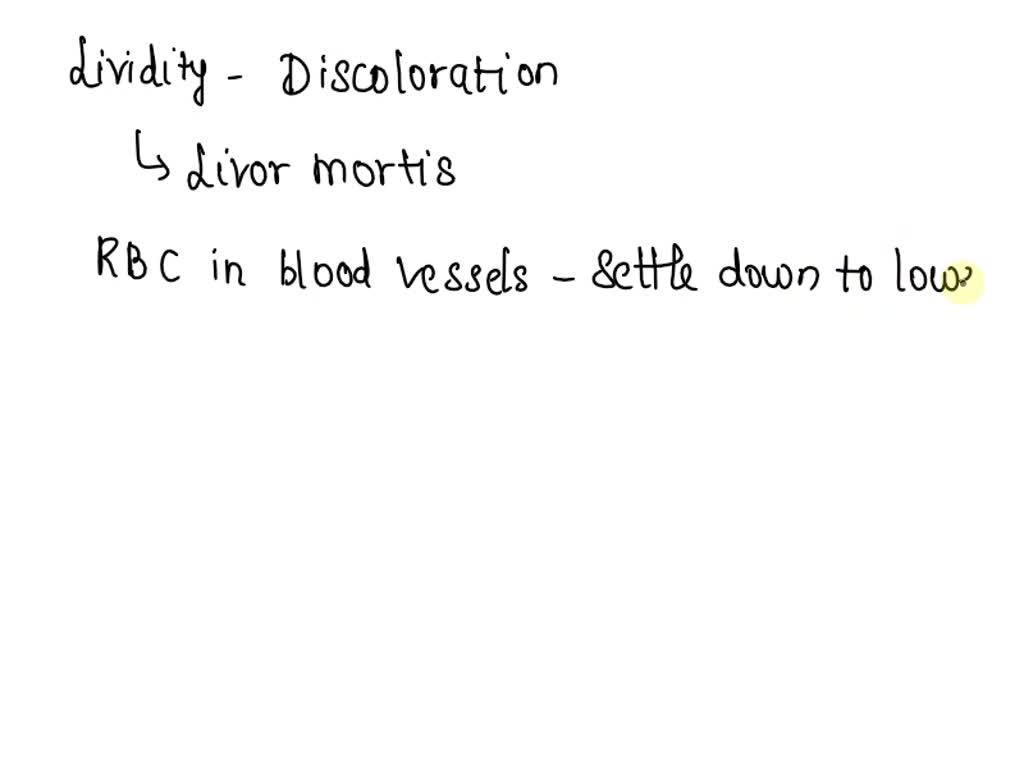 Lividity - Discoloration
↳ Livor mortis
RBC in blood vessels - settle down to low